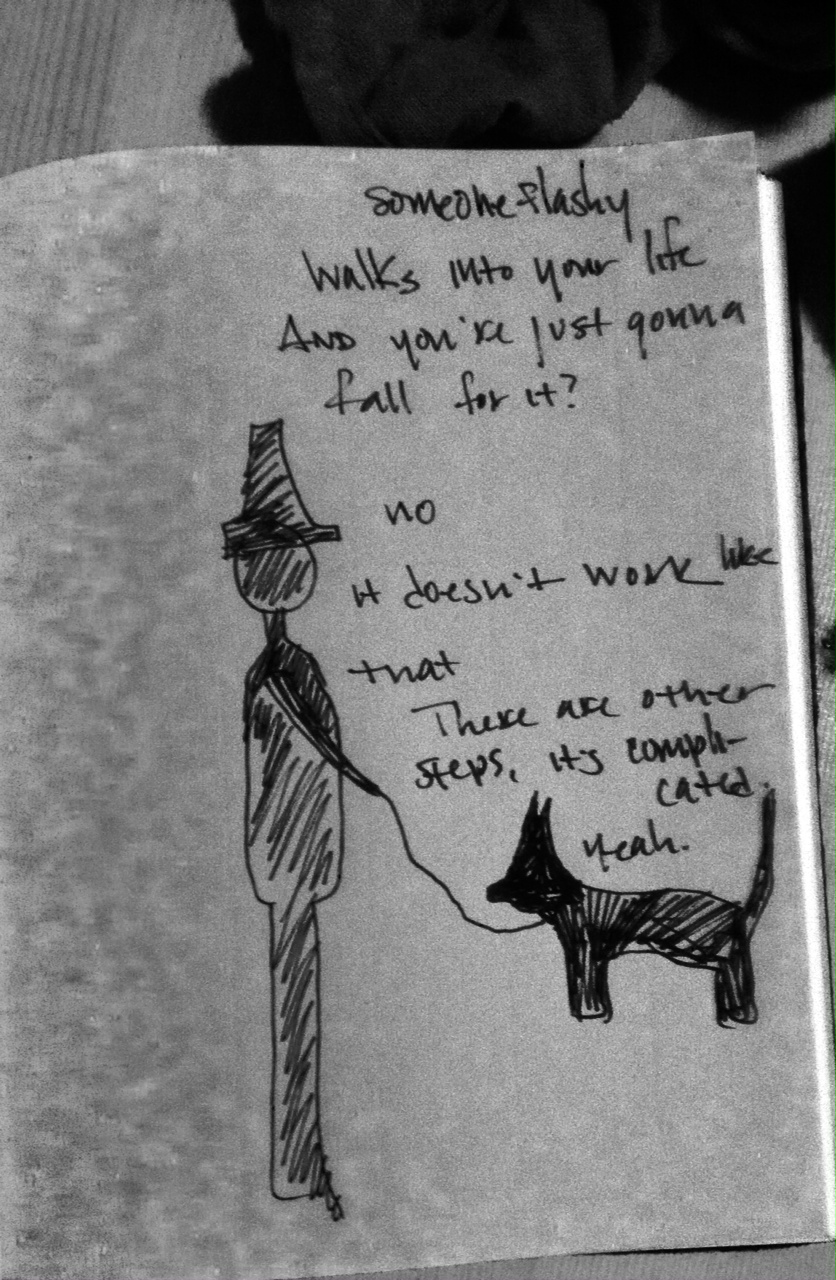 someone flashy
walks into your life
And you're just gonna
fall for it?
no
it doesn't work like
that
There are other
steps, it's compli-
cated.
yeah.